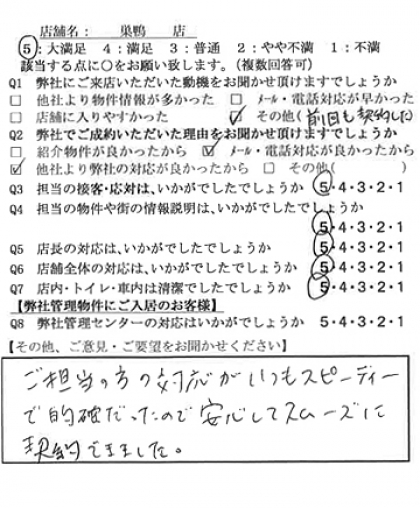 店舗名： 巣鴨 店
5：大満足 4：満足 3：普通 2：やや不満 1：不満
該当する点に○をお願い致します。（複数回答可）
Q1 弊社にご来店いただいた動機をお聞かせ頂けますでしょうか
□ 他社より物件情報が多かった □ メール・電話対応が早かった
□ 店舗に入りやすかった ☑ その他（前回も契約した）
Q2 弊社でご成約いただいた理由をお聞かせ頂けますでしょうか
□ 紹介物件が良かったから ☑ メール・電話対応が良かったから
☑ 他社より弊社の対応が良かったから □ その他（ ）
Q3 担当の接客・応対は、いかがでしたでしょうか 5・4・3・2・1
Q4 担当の物件や街の情報説明は、いかがでしたでしょうか
5・4・3・2・1
Q5 店長の対応は、いかがでしたでしょうか 5・4・3・2・1
Q6 店舗全体の対応は、いかがでしたでしょうか 5・4・3・2・1
Q7 店内・トイレ・車内は清潔でしたでしょうか 5・4・3・2・1
【弊社管理物件にご入居のお客様】
Q8 弊社管理センターの対応はいかがでしょうか 5・4・3・2・1
【その他、ご意見・ご要望をお聞かせください】
ご担当の方の対応がいつもスピーディー
で的確だったので安心してスムーズに
契約できました。